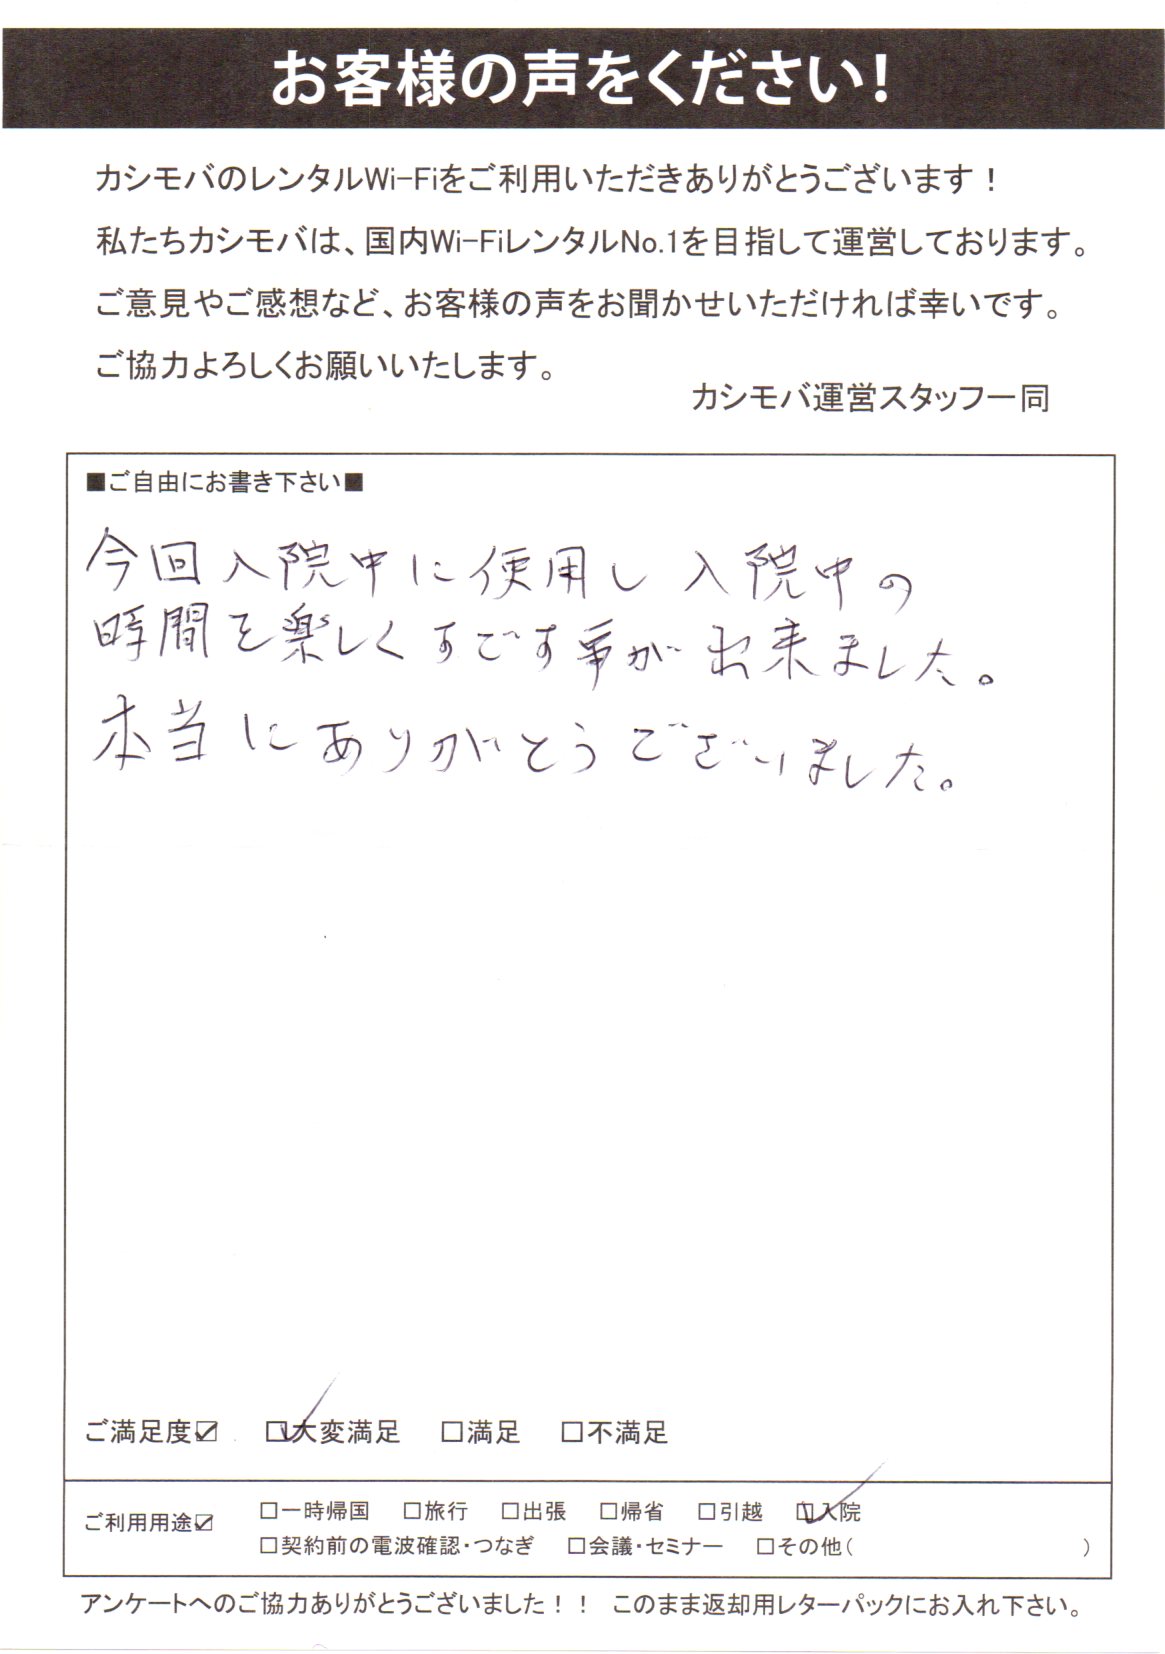 お客様の声をください!
カシモバのレンタルWi-Fiをご利用いただきありがとうございます！
私たちカシモバは、国内Wi-FiレンタルNo.1を目指して運営しております。
ご意見やご感想など、お客様の声をお聞かせいただければ幸いです。
ご協力よろしくお願いいたします。
カシモバ運営スタッフ一同
■ご自由にお書き下さい■
今回入院中に使用し入院中の
時間を楽しくすごす事が出来ました。
本当にありがとうございました。
ご満足度☑ ☑大変満足 □満足 □不満足
ご利用用途☑ □一時帰国 □旅行 □出張 □帰省 □引越 ☑入院
□契約前の電波確認・つなぎ □会議・セミナー □その他( )
アンケートへのご協力ありがとうございました！！ このまま返却用レターパックにお入れ下さい。